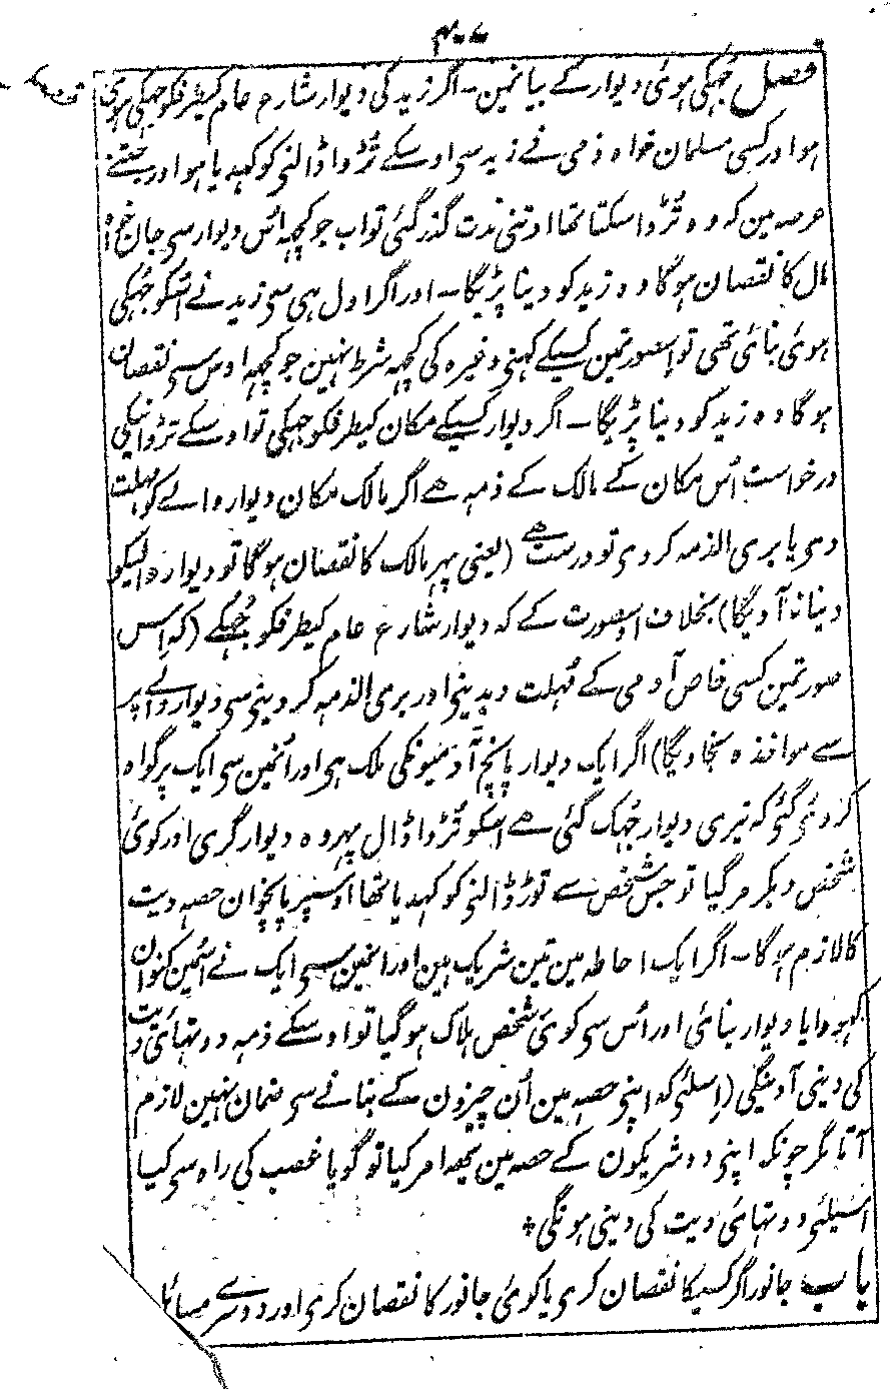 ۴۰۷
فصل جُہکی ہوئی دیوار کے بیانمین۔ اگر زید کی دیوار شارع عام کیطرفکو جہکی ہوئی
ہو اور کسی مسلمان خواہ ذمی نے زید سی اوسکے تُڑوا ڈالنی کو کہدیا ہو اور جتنے
عرصہ مین کہ وہ تُڑوا سکتا تھا اوتنی مدت گذر گئی تو اب جو کچہہ اُس دیوار سی جان
مال کا نقصان ہوگا وہ زید کو دینا پڑیگا۔ اور اگر اول ہی سی زید نے اُسکو جُہکی
ہوئی بنائی تھی تو اِسصورتمین کسیکے کہنی وغیرہ کی کچہہ شرط نہین جو کچہہ اوس سی نقصان
ہوگا وہ زید کو دینا پڑیگا۔ اگر دیوار کسیکے مکان کیطرفکو جہکی تو اوسکے تڑوانیکی
درخواست اُس مکان کے مالک کے ذمہ ھے اگر مالک مکان دیوار والے کو مہلت
دی یا بری الذمہ کر دی تو درست ھے (یعنی پہر مالک کا نقصان ہوگا تو دیوار والیکو
دینا نہ آویگا) بخلاف اوسصورت کے کہ دیوار شارع عام کیطرفکو جُہکے (کہ اِس
صورتمین کسی خاص آدمی کے مُہلت دیدینی اور بری الذمہ کر دینی سی دیوار والے پر
سے مواخذہ نجاویگا) اگر ایک دیوار پانچ آدمیونکی ملک ہی اور اُنمین سی ایک پر گواہ
کر دئی گئی کہ تیری دیوار جُہک گئی ھے اسکو تُڑوا ڈال پہر وہ دیوار گری اور کوئی
شخص دبکر مر گیا تو جس شخص سے توڑ ڈالنی کو کہدیا تھا اوسپر پانچوان حصہ دیت
کا لازم ہوگا۔ اگر ایک احاطہ مین تین شریک ہین اور انمین سی ایک نے اسمین کنوان
کہودوایا یا دیوار بنائی اور اُس سی کوئی شخص ہلاک ہو گیا تو اوسکے ذمہ دو تہائی دیت
کی دینی آوینگی (اِسلئی کہ اپنی حصہ مین اُن چیزون کے بنانے سی ضمان نہین لازم
آتا مگر چونکہ اپنی دو شریکون کے حصہ مین یہہ امر کیا تو گویا غصب کی راہ سی کیا
اسیلئی دو تہائی دیت کی دینی ہونگی
باب جانور اگر کسیکا نقصان کری یا کوئی جانور کا نقصان کری اور دوسرے مسائل